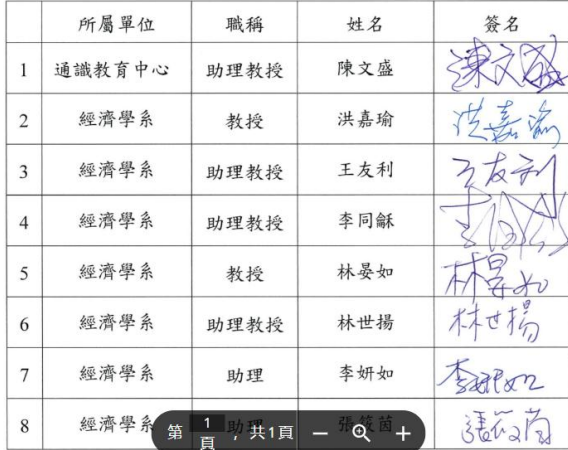 所屬單位 職稱 姓名 簽名
1 通識教育中心 助理教授 陳文盛 陳文盛
2 經濟學系 教授 洪嘉瑜 洪嘉瑜
3 經濟學系 助理教授 王友利 王友利
4 經濟學系 助理教授 李同龢
5 經濟學系 教授 林晏如 林晏如
6 經濟學系 助理教授 林世揚 林世揚
7 經濟學系 助理 李妍如 李妍如
8 經濟學系 助理 張筱茵 張筱茵
第 1 頁 , 共1頁